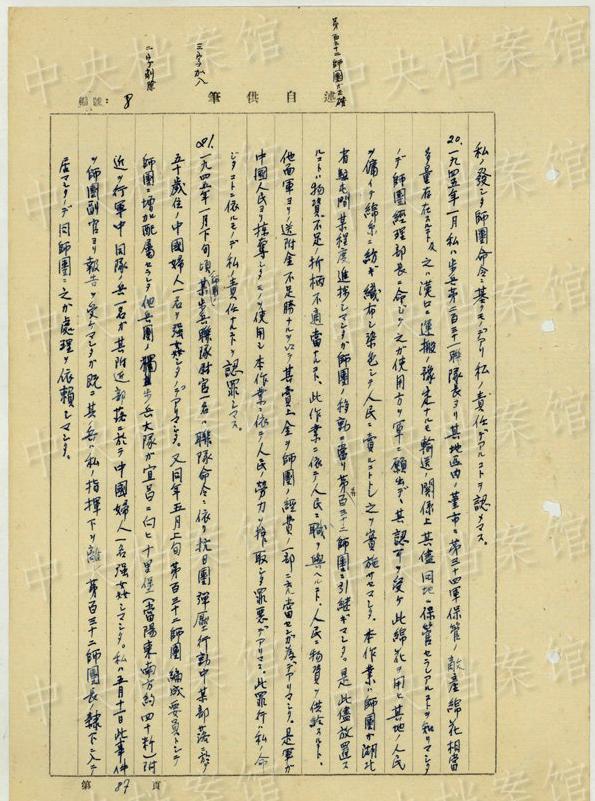 中央档案馆
第百三十二師團
三字加入
二字削除
筆供自述
編號：8
私ノ發シタ師團命令ニ基クモノデアリ私ノ責任デアルコトヲ認メマス。
20.一九四五年一月私ハ步兵第二百三十一聯隊長ヨリ其地區內ノ董市ニ第三十四軍保管ノ敵產綿花相當
多量存在スルト及之ハ漢口ニ運搬ノ豫定ナルモ輸送ノ關係上其儘同地ニ保管セラレアルコトヲ知リマシタ
ノデ師團經理部長ニ命ジテ之ガ使用方ヲ軍ニ願出デ其認可ヲ受ケ此綿花ヲ用ヒ其地ノ人民
ヲ傭イテ綿糸ニ紡ギ織布シ染色シテ人民ニ賣ルコトトシ之ヲ實施サセマシタ。本作業ハ師團ガ湖北
省駐屯間某程度進捗シマシタガ師團ノ移動ニ當リ第百三十二師團ニ引継ギマシタ。是此儘放置ス
ルコトハ物資不足ノ折柄不適當ナルト、此作業ニ依テ人民ニ職ヲ與ヘルト、人民ニ物資ヲ供給スルト、
他面軍ヨリノ送附金不足勝ナルヲ以テ其賣上金ヲ師團ノ經費ノ一部ニ充當センガ為デアリマシタ。是軍ガ
中國人民ヨリ掠奪シタモノヲ使用シ本作業ニ依テ人民ノ勞力ヲ搾取シタ罪惡デアリマシテ此罪行ハ私ノ命
ジタコトニ依ルモノデ私ノ責任ナルコトヲ認罪シマス。
21.一九四五年一月下旬頃師團ノ某步兵聯隊尉官一名ハ聯隊命令ニ依ル抗日團彈壓行動中某部落ニ於テ
五十歲位ノ中國婦人一名ヲ強姦シタノデアリマシタ。又同年五月上旬第百三十二師團編成要員トシテ
師團ニ增加配屬セラレタ他兵團ノ獨立步兵大隊ガ宜昌ニ向ヒ十里堡(當陽東南方約四十粁)附
近ヲ行軍中同隊兵一名ガ其附近部落ニ於テ中國婦人一名強姦シマシタ。私ハ五月十一日此事件
ヲ師團副官ヨリ報告ヲ受ケマシタガ既ニ其兵ハ私ノ指揮下ヲ離レ第百三十二師團長ノ隷下ニ入ッテ
居マシタノデ同師團ニ之ガ處理ヲ依賴シマシタ。
第 87 頁